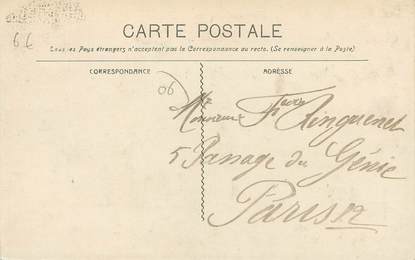 6.6
CARTE POSTALE
Tous les Pays étrangers n'acceptent pas la Correspondance au recto. (Se renseigner à la Poste)
CORRESPONDANCE
ADRESSE
06
Monsieur
5 Passage du Génie
Paris 12